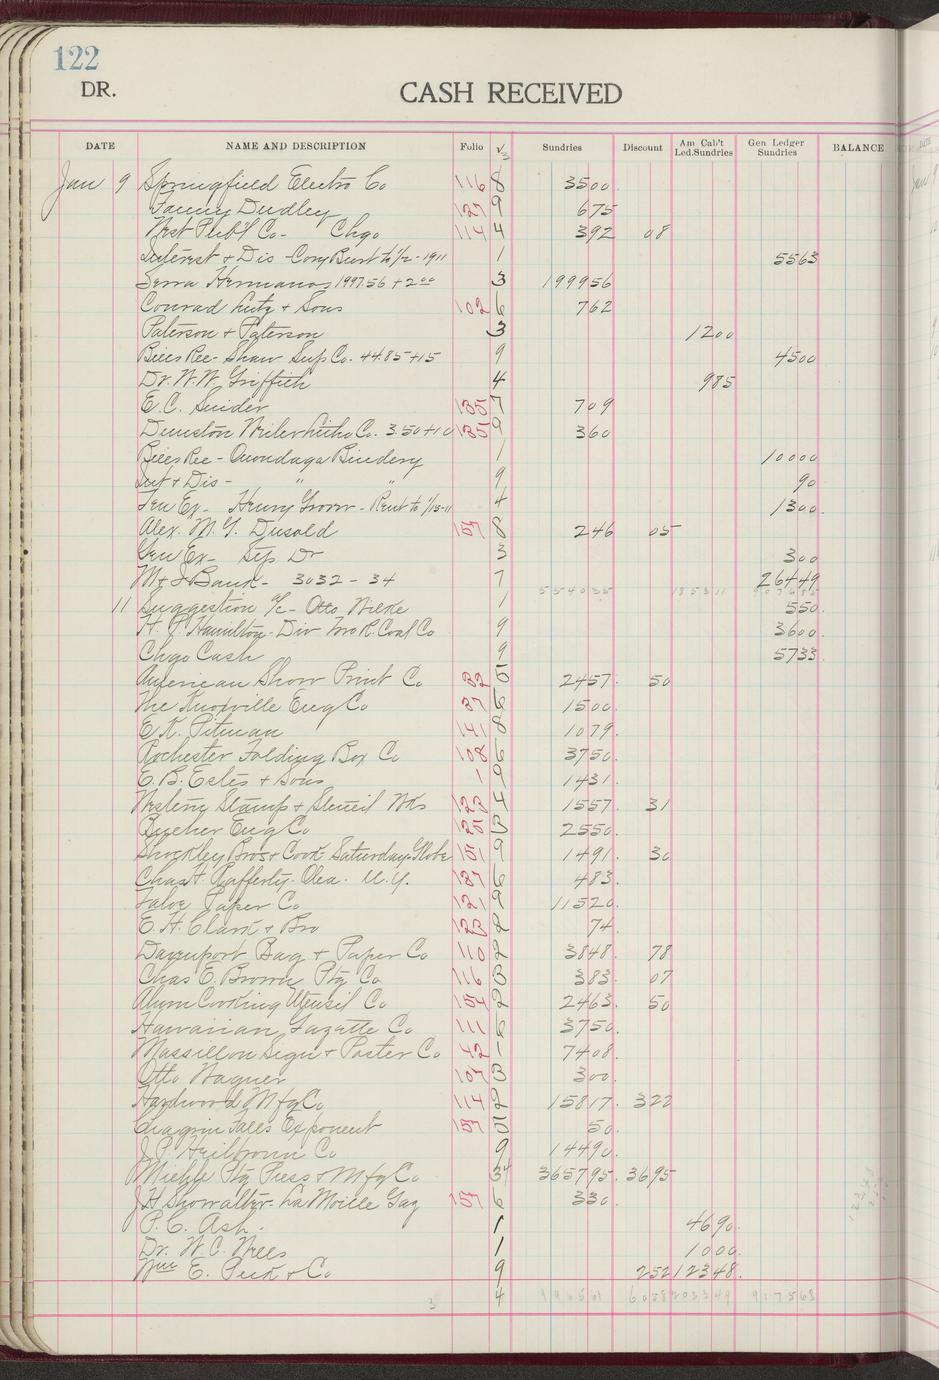 122
DR.
CASH RECEIVED
DATE NAME AND DESCRIPTION Folio √ Sundries Discount Am Cab't Led.Sundries Gen Ledger Sundries BALANCE
Jan 9 Springfield Electro Co 116 8 3500
Fanny Dudley 127 9 675
West Pub'l Co - Chgo 114 4 392 08
Interest + Dis - Cory Burt to 1/2-1911 1 5563
Serra Hermanos 1997.56 + 2.00 3 199956
Conrad Lutz + Sons 102 6 762
Paterson + Paterson 3 1200
Bills Rec - Shaw Sup Co. 44.85 + 15 9 4500
Dr. W.W. Griffith 4 985
E.C. Snider 135 7 709
Dunston Weiler Litho Co. 3.50 + 10 135 9 360
Bills Rec - Onondaga Bindery 1 10000
Int + Dis - " " 9 90
Gen Ex - Henry Groom - Rent to 1/15-11 4 1300
Alex. M. G. Dusold 157 8 246 05
Gen Ex - Sip Dr 3 300
M + S Bank - 3032 - 34 7 26449
11 Suggestion a/c - Otto Wilke 1 550
H. P. Hamilton - Div Mo R. Coal Co 9 3600
Chgo Cash 9 5733
American Show Print Co 22 5 2457 50
The Knoxville Eng Co 37 6 1500
E.K. Pitman 141 8 1079
Rochester Folding Box Co 108 6 3750
E.B. Estes + Sons 1 9 1431
Western Stamp + Stencil Wks 122 4 1557 31
Bucher Eng Co 125 3 2550
Shockley Bros + Cook - Saturday Globe 151 9 1491 30
Chas H. Rafferty - Olea. N.Y. 137 6 483
Taloe Paper Co 121 9 11520
E.H. Clark + Bro 122 2 74
Davenport Bag + Paper Co 110 2 3848 78
Chas E. Brown Ptg Co 116 3 383 07
Alum Cooking Utensil Co 154 2 2463 50
Hawaiian Gazette Co 111 6 3750
Massillon Sign + Poster Co 42 1 7408
Otto Wagner 107 3 300
Hardwood Mfg Co 114 2 15817 322
Chagrin Falls Exponent 157 5 50
J.P. Heilbronn Co 9 14490
Miehle Ptg Press + Mfg Co 34 365795 3695
J.H. Showalter - La Moille Gaz 157 6 330
P.C. Ash - 1 4690
Dr. W.C. Wells 1 1000
Wm E. Peck + Co 9 252 12348
3 4 917568